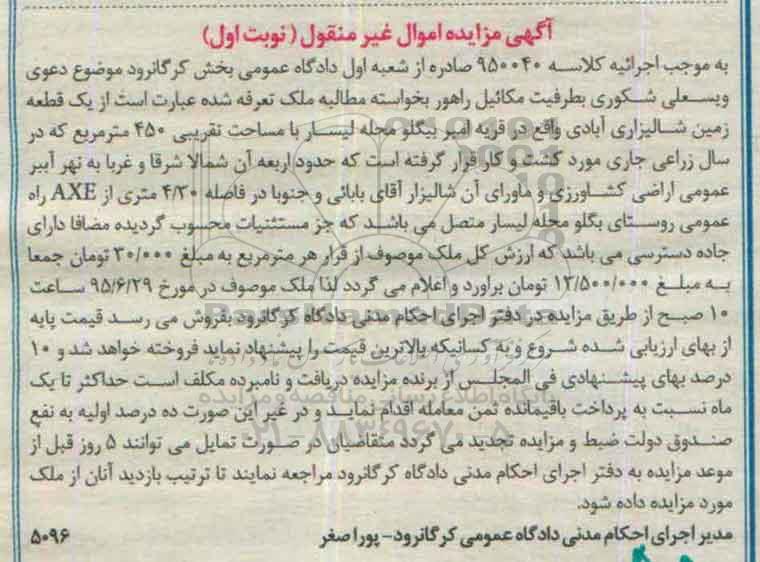 آگهی مزایده اموال غیر منقول (نوبت اول)
به موجب اجرائیه کلاسه ۹۵۰۰۴۰ صادره از شعبه اول دادگاه عمومی بخش کرگانرود موضوع دعوی
ویسعلی شکوری بطرفیت مکائیل راهور بخواسته مطالبه ملک تعرفه شده عبارت است از یک قطعه
زمین شالیزاری آبادی واقع در قریه امیر بیگلو محله لیسار با مساحت تقریبی ۴۵۰ مترمربع که در
سال زراعی جاری مورد کشت و کار قرار گرفته است که حدود اربعه آن شمالا شرقا و غربا به نهر آببر
عمومی اراضی کشاورزی و ماورای آن شالیزار آقای بابائی و جنوبا در فاصله ۴/۳۰ متری از AXE راه
عمومی روستای بگلو محله لیسار متصل می باشد که جز مستثنیات محسوب گردیده مضافا دارای
جاده دسترسی می باشد که ارزش کل ملک موصوف از قرار هر مترمربع به مبلغ ۳۰/۰۰۰ تومان جمعا
به مبلغ ۱۳/۵۰۰/۰۰۰ تومان براورد و اعلام می گردد لذا ملک موصوف در مورخ ۹۵/۶/۲۹ ساعت
۱۰ صبح از طریق مزایده در دفتر اجرای احکام مدنی دادگاه کرگانرود بفروش می رسد قیمت پایه
از بهای ارزیابی شده شروع و به کسانیکه بالاترین قیمت را پیشنهاد نماید فروخته خواهد شد و ۱۰
درصد بهای پیشنهادی فی المجلس از برنده مزایده دریافت و نامبرده مکلف است حداکثر تا یک
ماه نسبت به پرداخت باقیمانده ثمن معامله اقدام نماید و در غیر این صورت ده درصد اولیه به نفع
صندوق دولت ضبط و مزایده تجدید می گردد متقاضیان در صورت تمایل می توانند ۵ روز قبل از
موعد مزایده به دفتر اجرای احکام مدنی دادگاه کرگانرود مراجعه نمایند تا ترتیب بازدید آنان از ملک
مورد مزایده داده شود.
مدیر اجرای احکام مدنی دادگاه عمومی کرگانرود- پوراصغر ۵۰۹۶